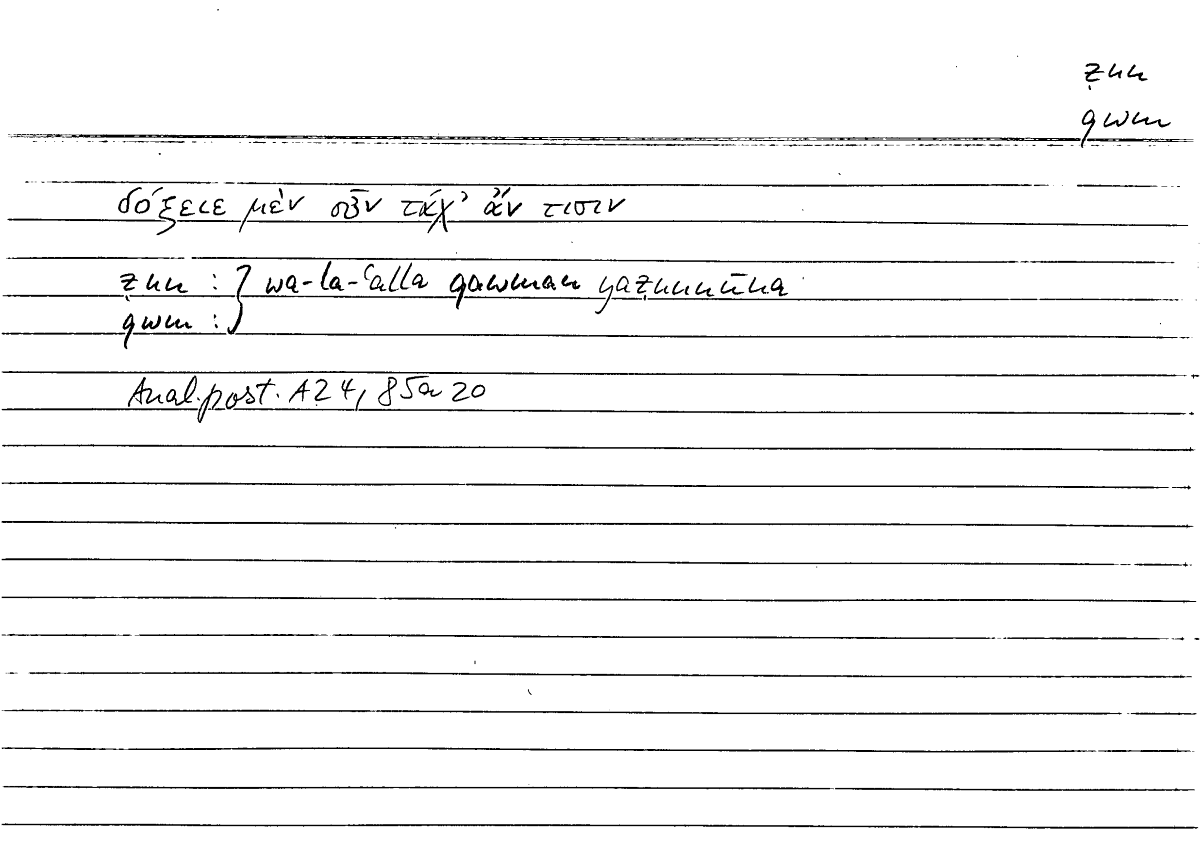 ẓnn
qwm
δόξειε μὲν οὖν τάχ’ ἄν τισιν
ẓnn : } wa-la-ʿalla qawman yaẓunnūna
qwm : }
Anal.post. A24, 85a20